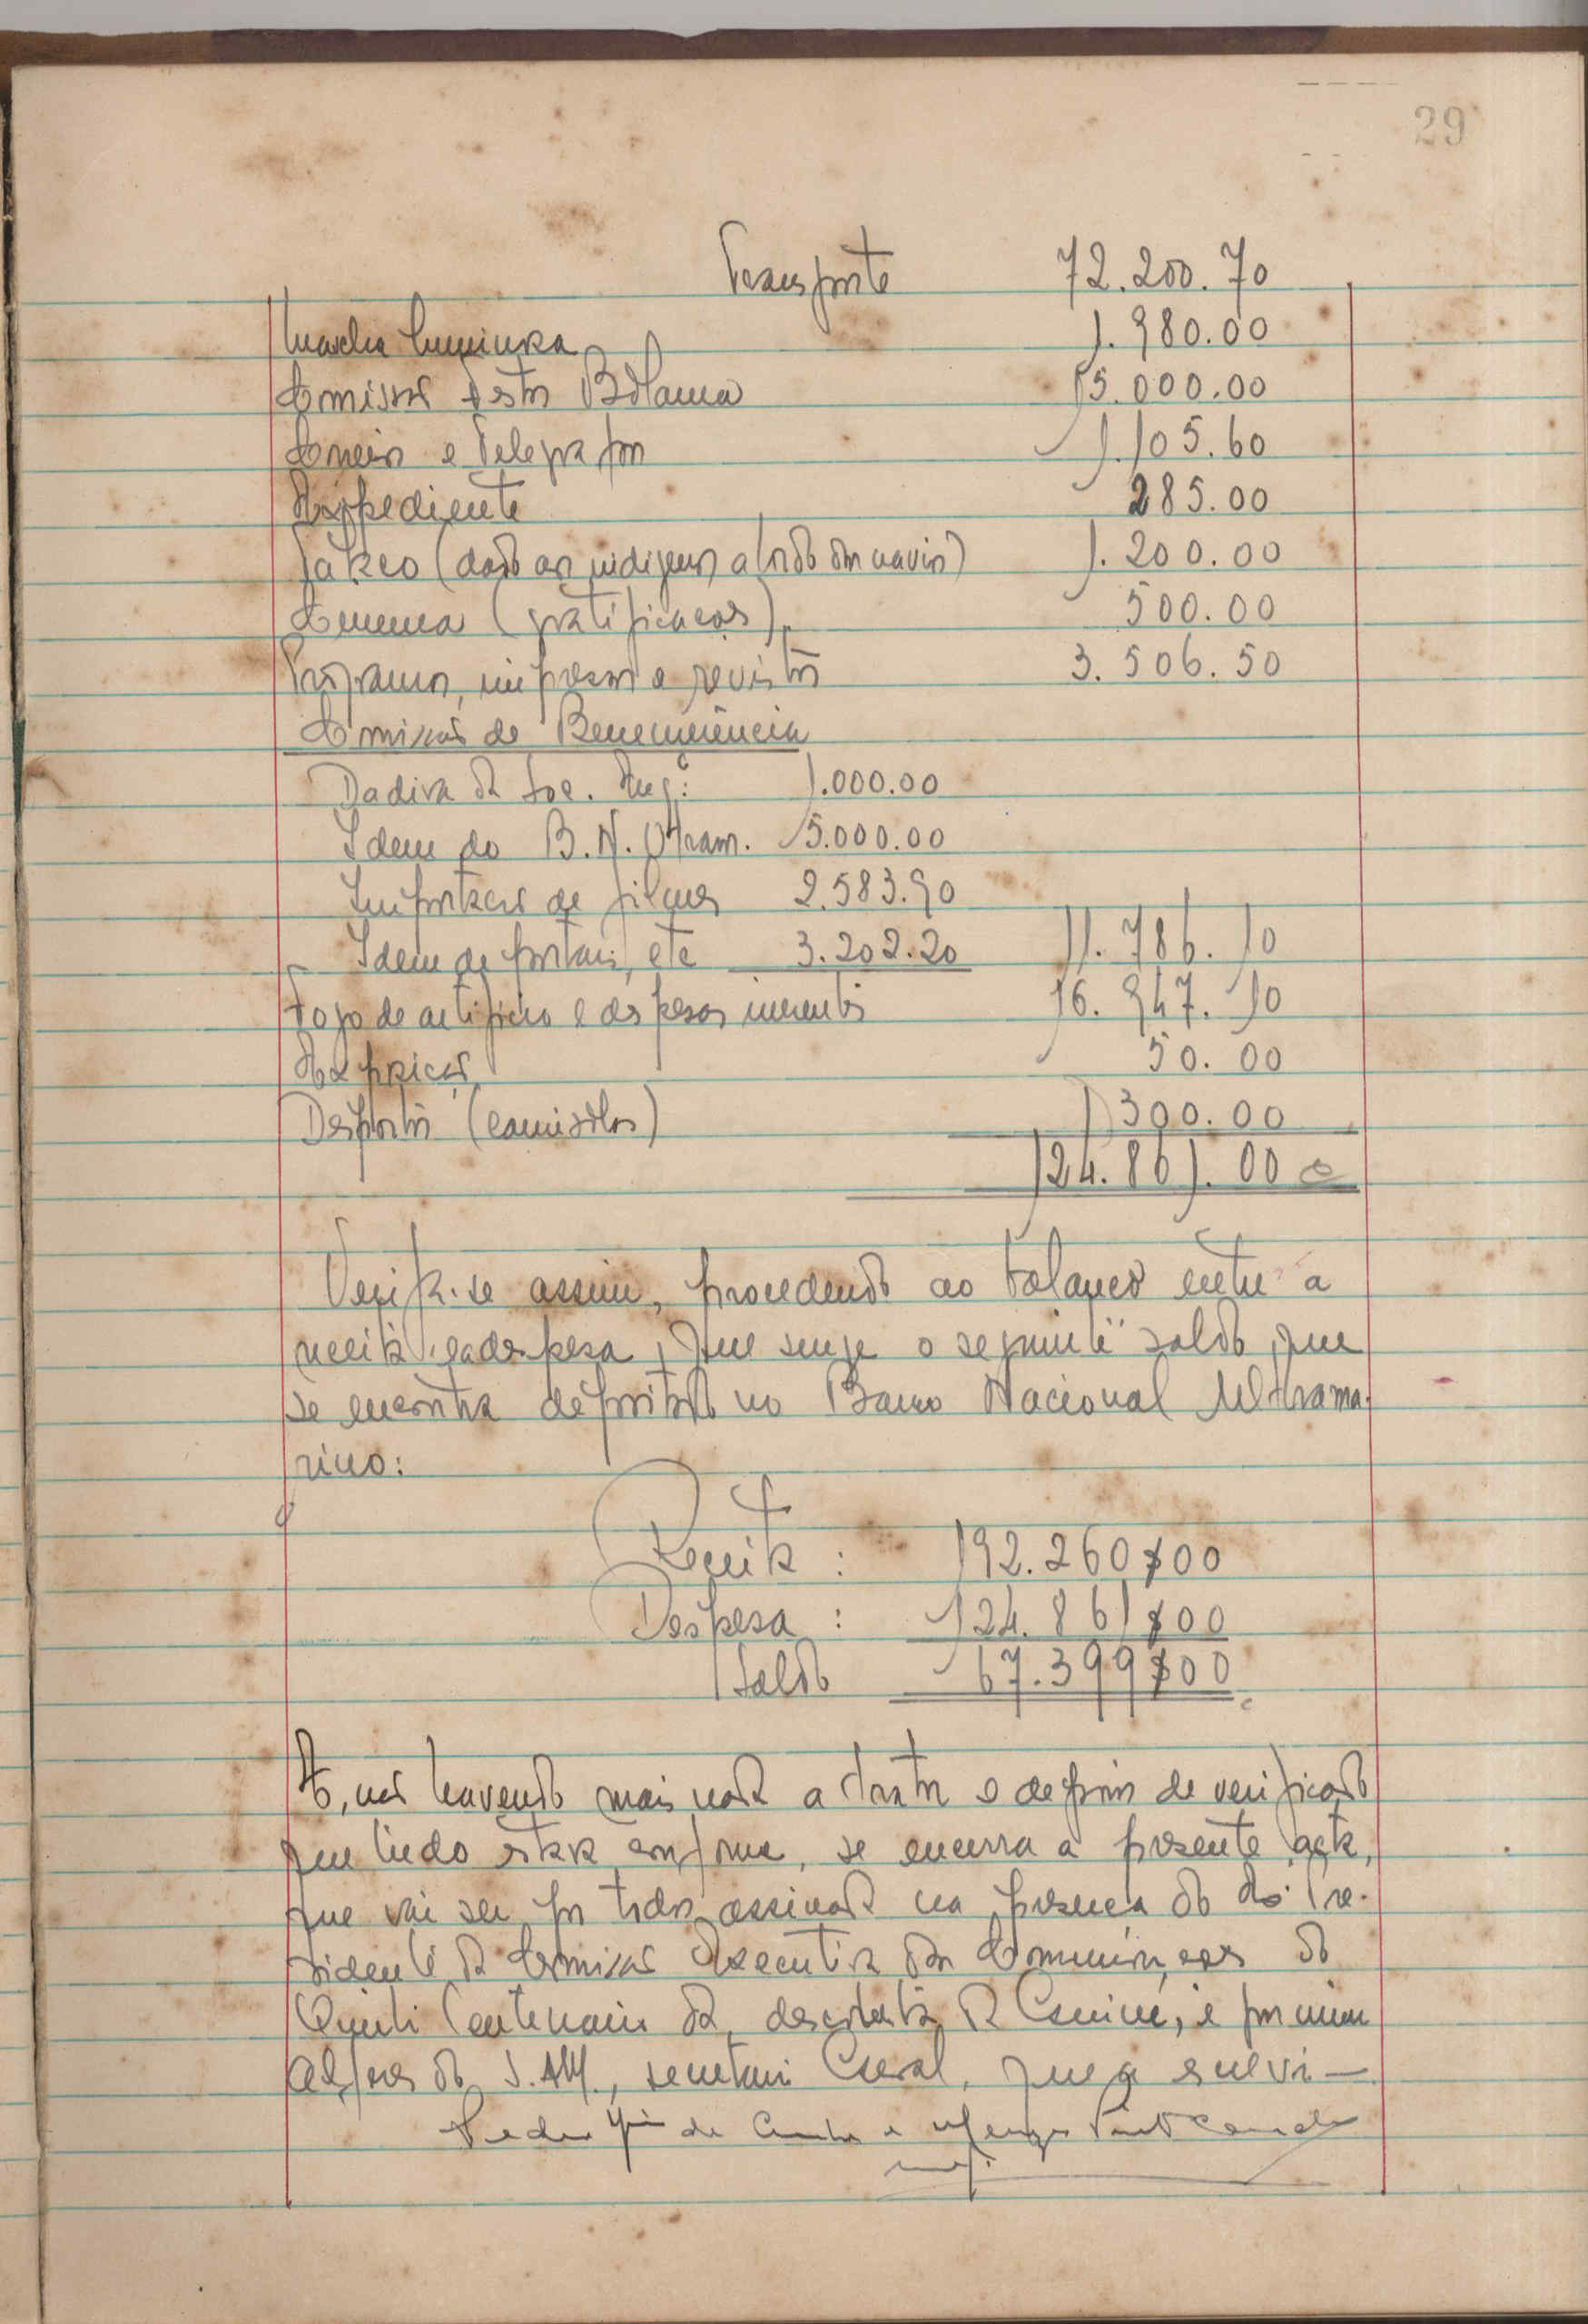 29
Transporte 72.200.70
Marcha luminosa 1.980.00
Comissão Festas Bolama 15.000.00
Correios e Telegrafos 1.105.60
Expediente 285.00
Tabaco (dado aos indigenas a bordo dos navios) 1.200.00
Cinema (gratificação) 500.00
Programas, impressos e revistas 3.506.50
Comissão de Benemerência
Dadiva da Soc. Ang.: 1.000.00
Idem do B.N. Ultram. 5.000.00
Importação de filmes 2.583.90
Idem de postais, etc 3.202.20 11.786.10
Fogo de artificio e despesas inerentes 16.947.10
50.00
Desportos (camisolas) 300.00
124.861.00
Verifica-se assim, procedendo ao balanço entre a
receita e a despesa, que surge o seguinte saldo, que
se encontra depositado no Banco Nacional Ultrama-
rino:
Receita : 192.260$00
Despesa : 124.861$00
Saldo 67.399$00
E, não havendo mais nada a tratar e depois de verificado
que tudo estava conforme, se encerra a presente acta,
que vai ser por todos assinada na presença do Ex.º Pre-
sidente da Comissão Executiva das Comemorações do
Quinto Centenario da descoberta da Guiné, e por mim
do S. secretario Geral, que a escrevi —
Pedro de Cunha e